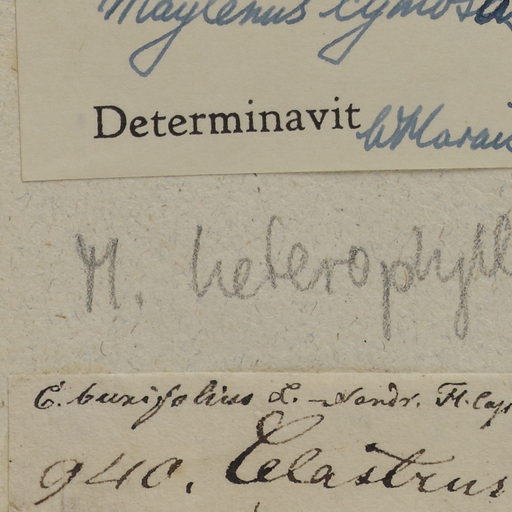 Maytenus cymosa
Determinavit W Marais
M. heterophyll
C. buxifolius L. Sondr. Fl. Cap
940. Celastrus